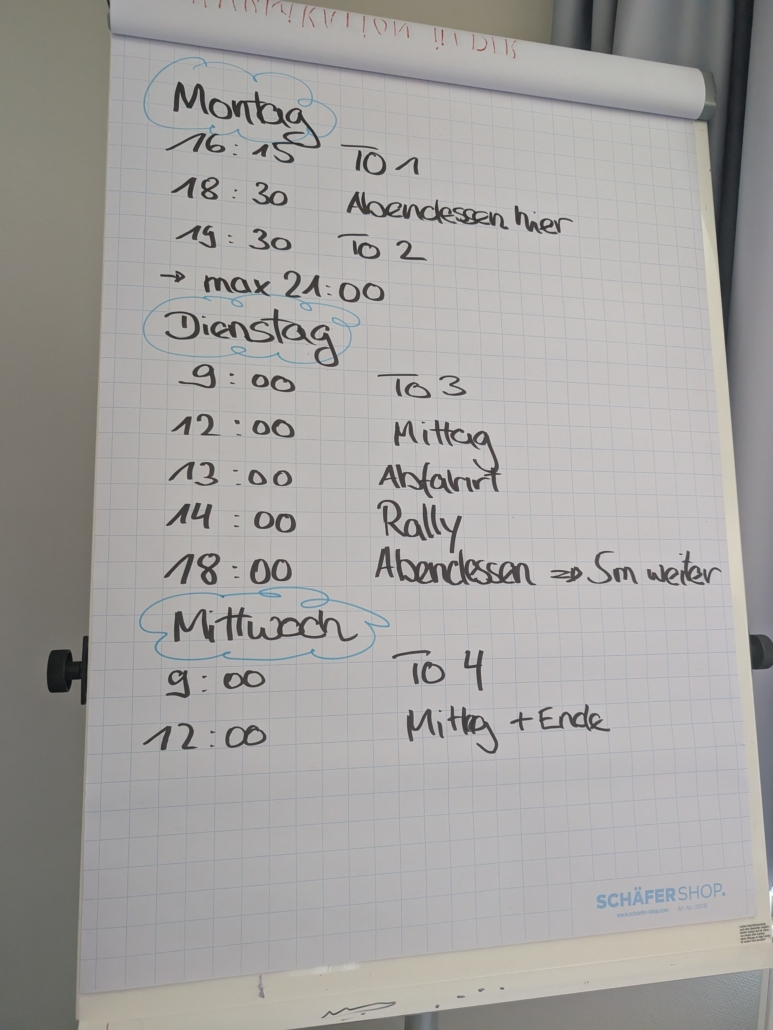 Montag
16:15 TO 1
18:30 Abendessen hier
19:30 TO 2
→ max 21:00
Dienstag
9:00 TO 3
12:00 Mittag
13:00 Abfahrt
14:00 Rally
18:00 Abendessen ⇒ 5m weiter
Mittwoch
9:00 TO 4
12:00 Mittg + Ende
SCHÄFER SHOP.
www.schaefer-shop.com